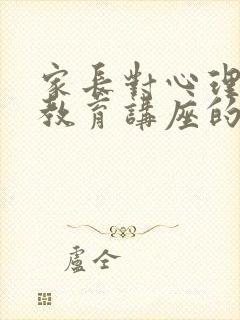 家長對心理
教育講座的
盧仝